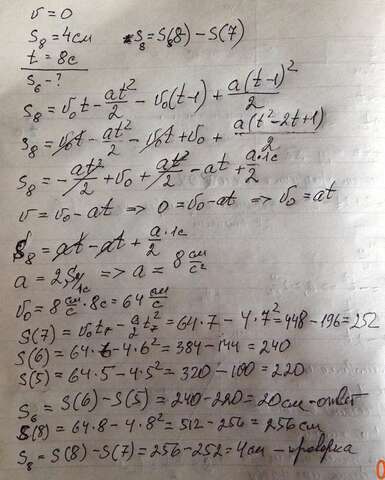 v = 0
S₈ = 4см S₈ = S(8) − S(7)
t = 8с
S₆ − ?
S₈ = v₀t − at²/2 − v₀(t−1) + a(t−1)²/2
S₈ = v₀t − at²/2 − v₀t + v₀ + a(t²−2t+1)/2
S₈ = −at²/2 + v₀ + at²/2 − at + a·1с/2
v = v₀ − at => 0 = v₀ − at => v₀ = at
S₈ = at − at + a/2 · 1с
a = 2S₈/1с => a = 8 см/с²
v₀ = 8 см/с · 8с = 64 см/с
S(7) = v₀t₇ − a/2 t₇² = 64·7 − 4·7² = 448 − 196 = 252
S(6) = 64·6 − 4·6² = 384 − 144 = 240
S(5) = 64·5 − 4·5² = 320 − 100 = 220
S₆ = S(6) − S(5) = 240 − 220 = 20см − ответ
S(8) = 64·8 − 4·8² = 512 − 256 = 256см
S₈ = S(8) − S(7) = 256 − 252 = 4см − проверка